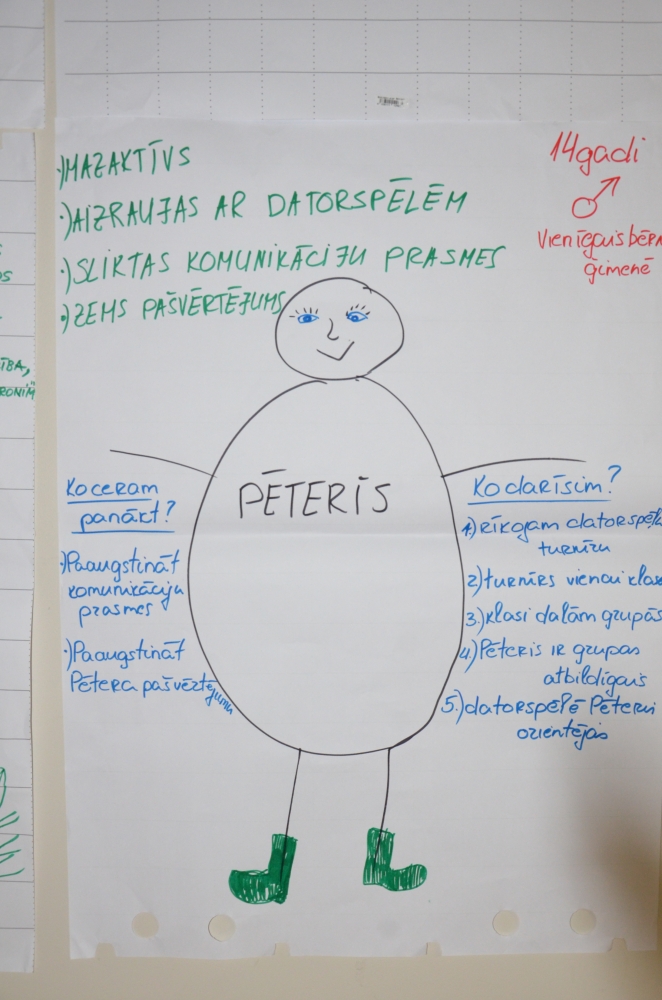 •) MAZAKTĪVS
•) AIZRAUJAS AR DATORSPĒLĒM
•) SLIKTAS KOMUNIKĀCIJU PRASMES
•) ZEMS PAŠVĒRTĒJUMS
14 gadi
Vienīgais bērn
ģimenē
PĒTERIS
Ko ceram
panākt?
•) Paaugstināt
komunikāciju
prasmes
•) Paaugstināt
Pētera pašvērtējumu
Ko darīsim?
1) rīkojam datorspēļu
turnīru
2) turnīrs vienai klas
3.) klasi dalām grupās
4) Pēteris ir grupas
atbildīgais
5.) datorspēlē Pēteris
orientējas
ĪBA,
RONIM